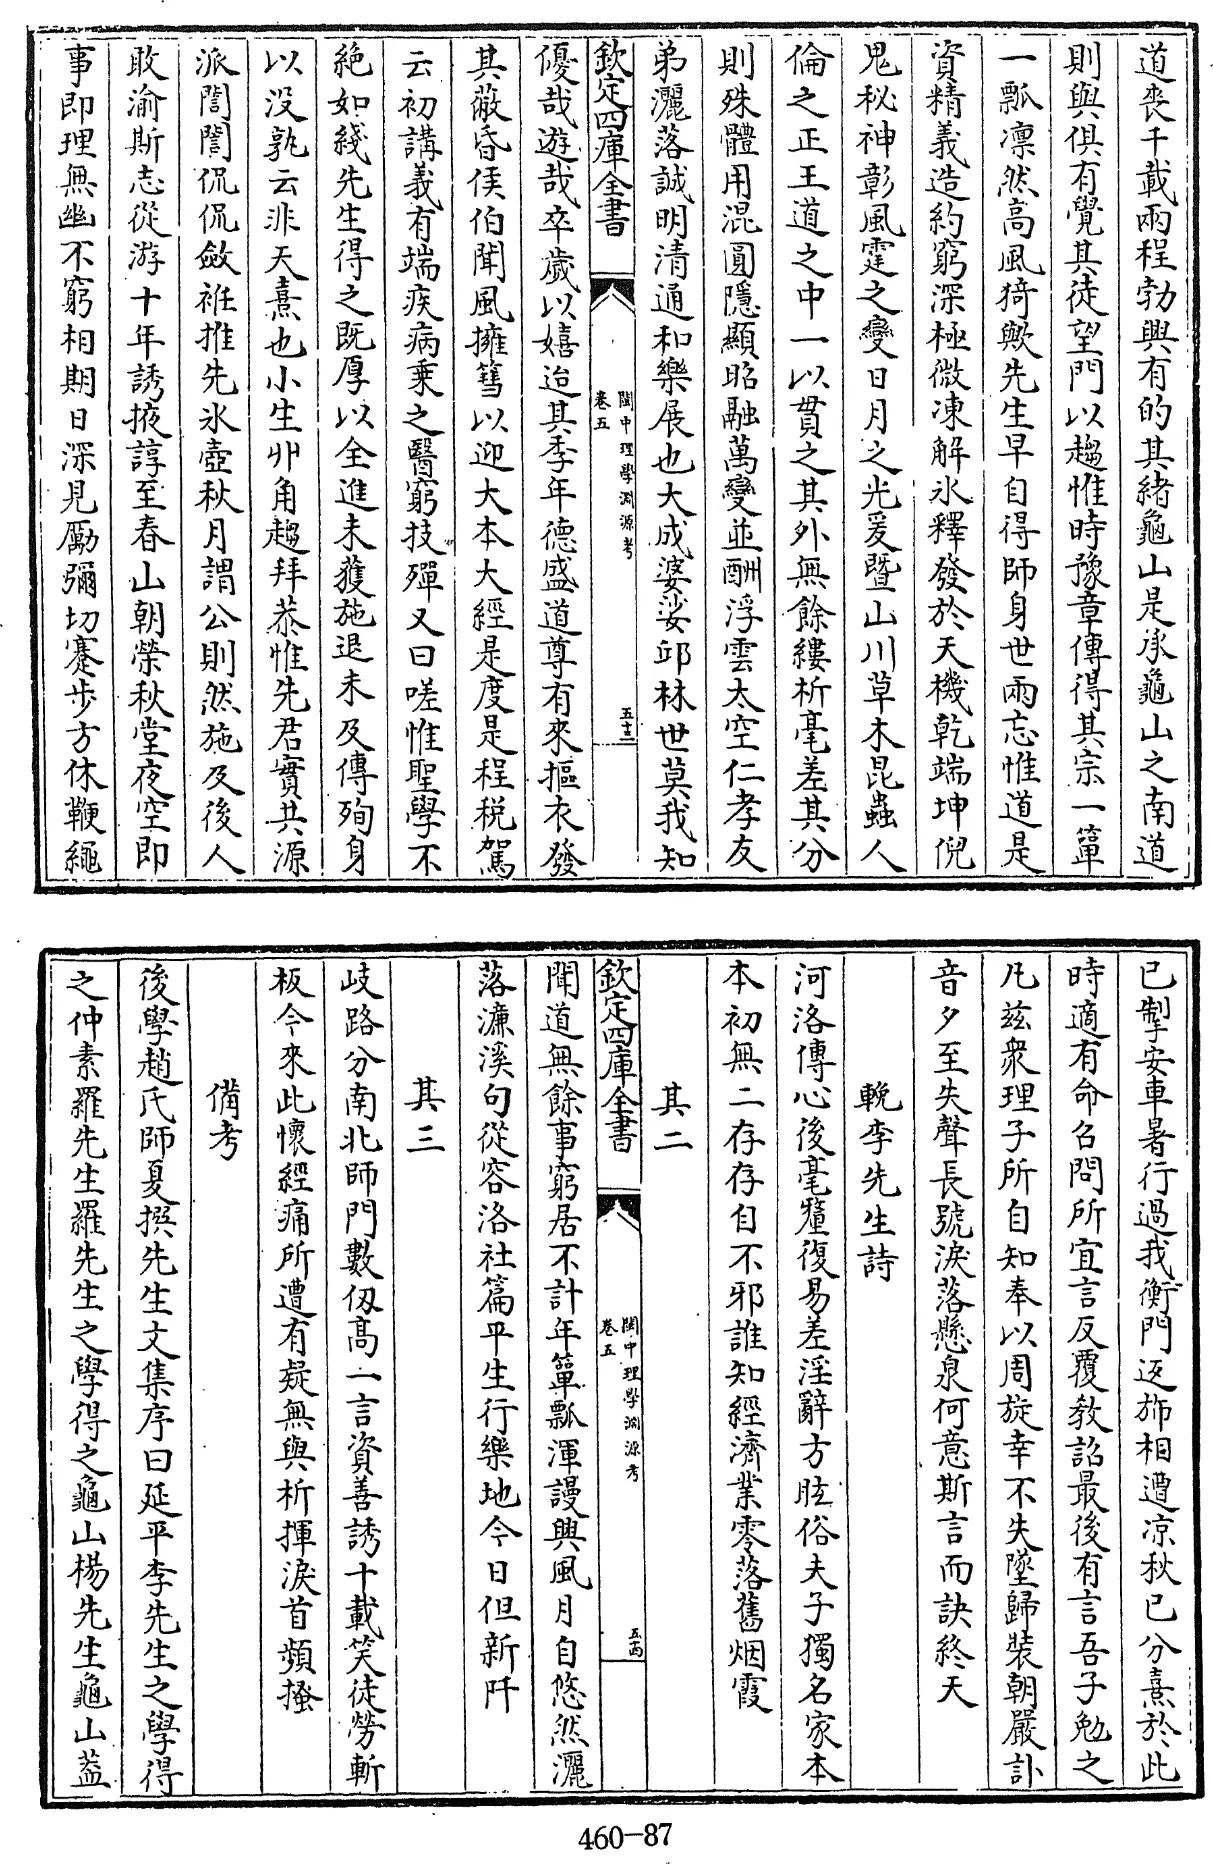 道喪千載兩程勃興有的其緒龜山是承龜山之南道
則與俱有覺其徒望門以趨惟時豫章傳得其宗一簞
一瓢凛然高風猗歟先生早自得師身世兩忘惟道是
資精義造約窮深極微凍解氷釋發於天機乾端坤倪
鬼秘神彰風霆之變日月之光爰曁山川草木昆蟲人
倫之正王道之中一以貫之其外無餘縷析毫差其分
則殊體用混圓隱顯昭融萬變並酬浮雲太空仁孝友
弟灑落誠明清通和樂展也大成婆娑邱林世莫我知
欽定四庫全書
閩中理學淵源考
卷五
五十三
優哉遊哉卒歲以嬉迨其季年德盛道尊有來摳衣發
其蔽昏侯伯聞風擁篲以迎大本大經是度是程税駕
云初講義有端疾病乗之醫窮技殫又曰嗟惟聖學不
絶如綫先生得之既厚以全進未獲施退未及傳殉身
以没孰云非天熹也小生丱角趨拜恭惟先君實共源
派誾誾侃侃斂袵推先氷壺秋月謂公則然施及後人
敢渝斯志從游十年誘掖諄至春山朝榮秋堂夜空即
事即理無幽不窮相期日深見勵彌切蹇步方休鞭繩
已掣安車暑行過我衡門返斾相遭凉秋已分熹於此
時適有命召問所宜言反覆教詔最後有言吾子勉之
凡兹衆理子所自知奉以周旋幸不失墜歸裝朝嚴訃
音夕至失聲長號淚落懸泉何意斯言而訣終天
輓李先生詩
河洛傳心後毫釐復易差淫辭方眩俗夫子獨名家本
本初無二存存自不邪誰知經濟業零落舊烟霞
其二
欽定四庫全書
閩中理學淵源考
卷五
五十四
聞道無餘事窮居不計年簞瓢渾謾興風月自悠然灑
落濂溪句從容洛社篇平生行樂地今日但新阡
其三
岐路分南北師門數仭高一言資善誘十載笑徒勞斬
板今來此懷經痛所遭有疑無與析揮淚首頻搔
備考
後學趙氏師夏撰先生文集序曰延平李先生之學得
之仲素羅先生羅先生之學得之龜山楊先生龜山葢
460-87